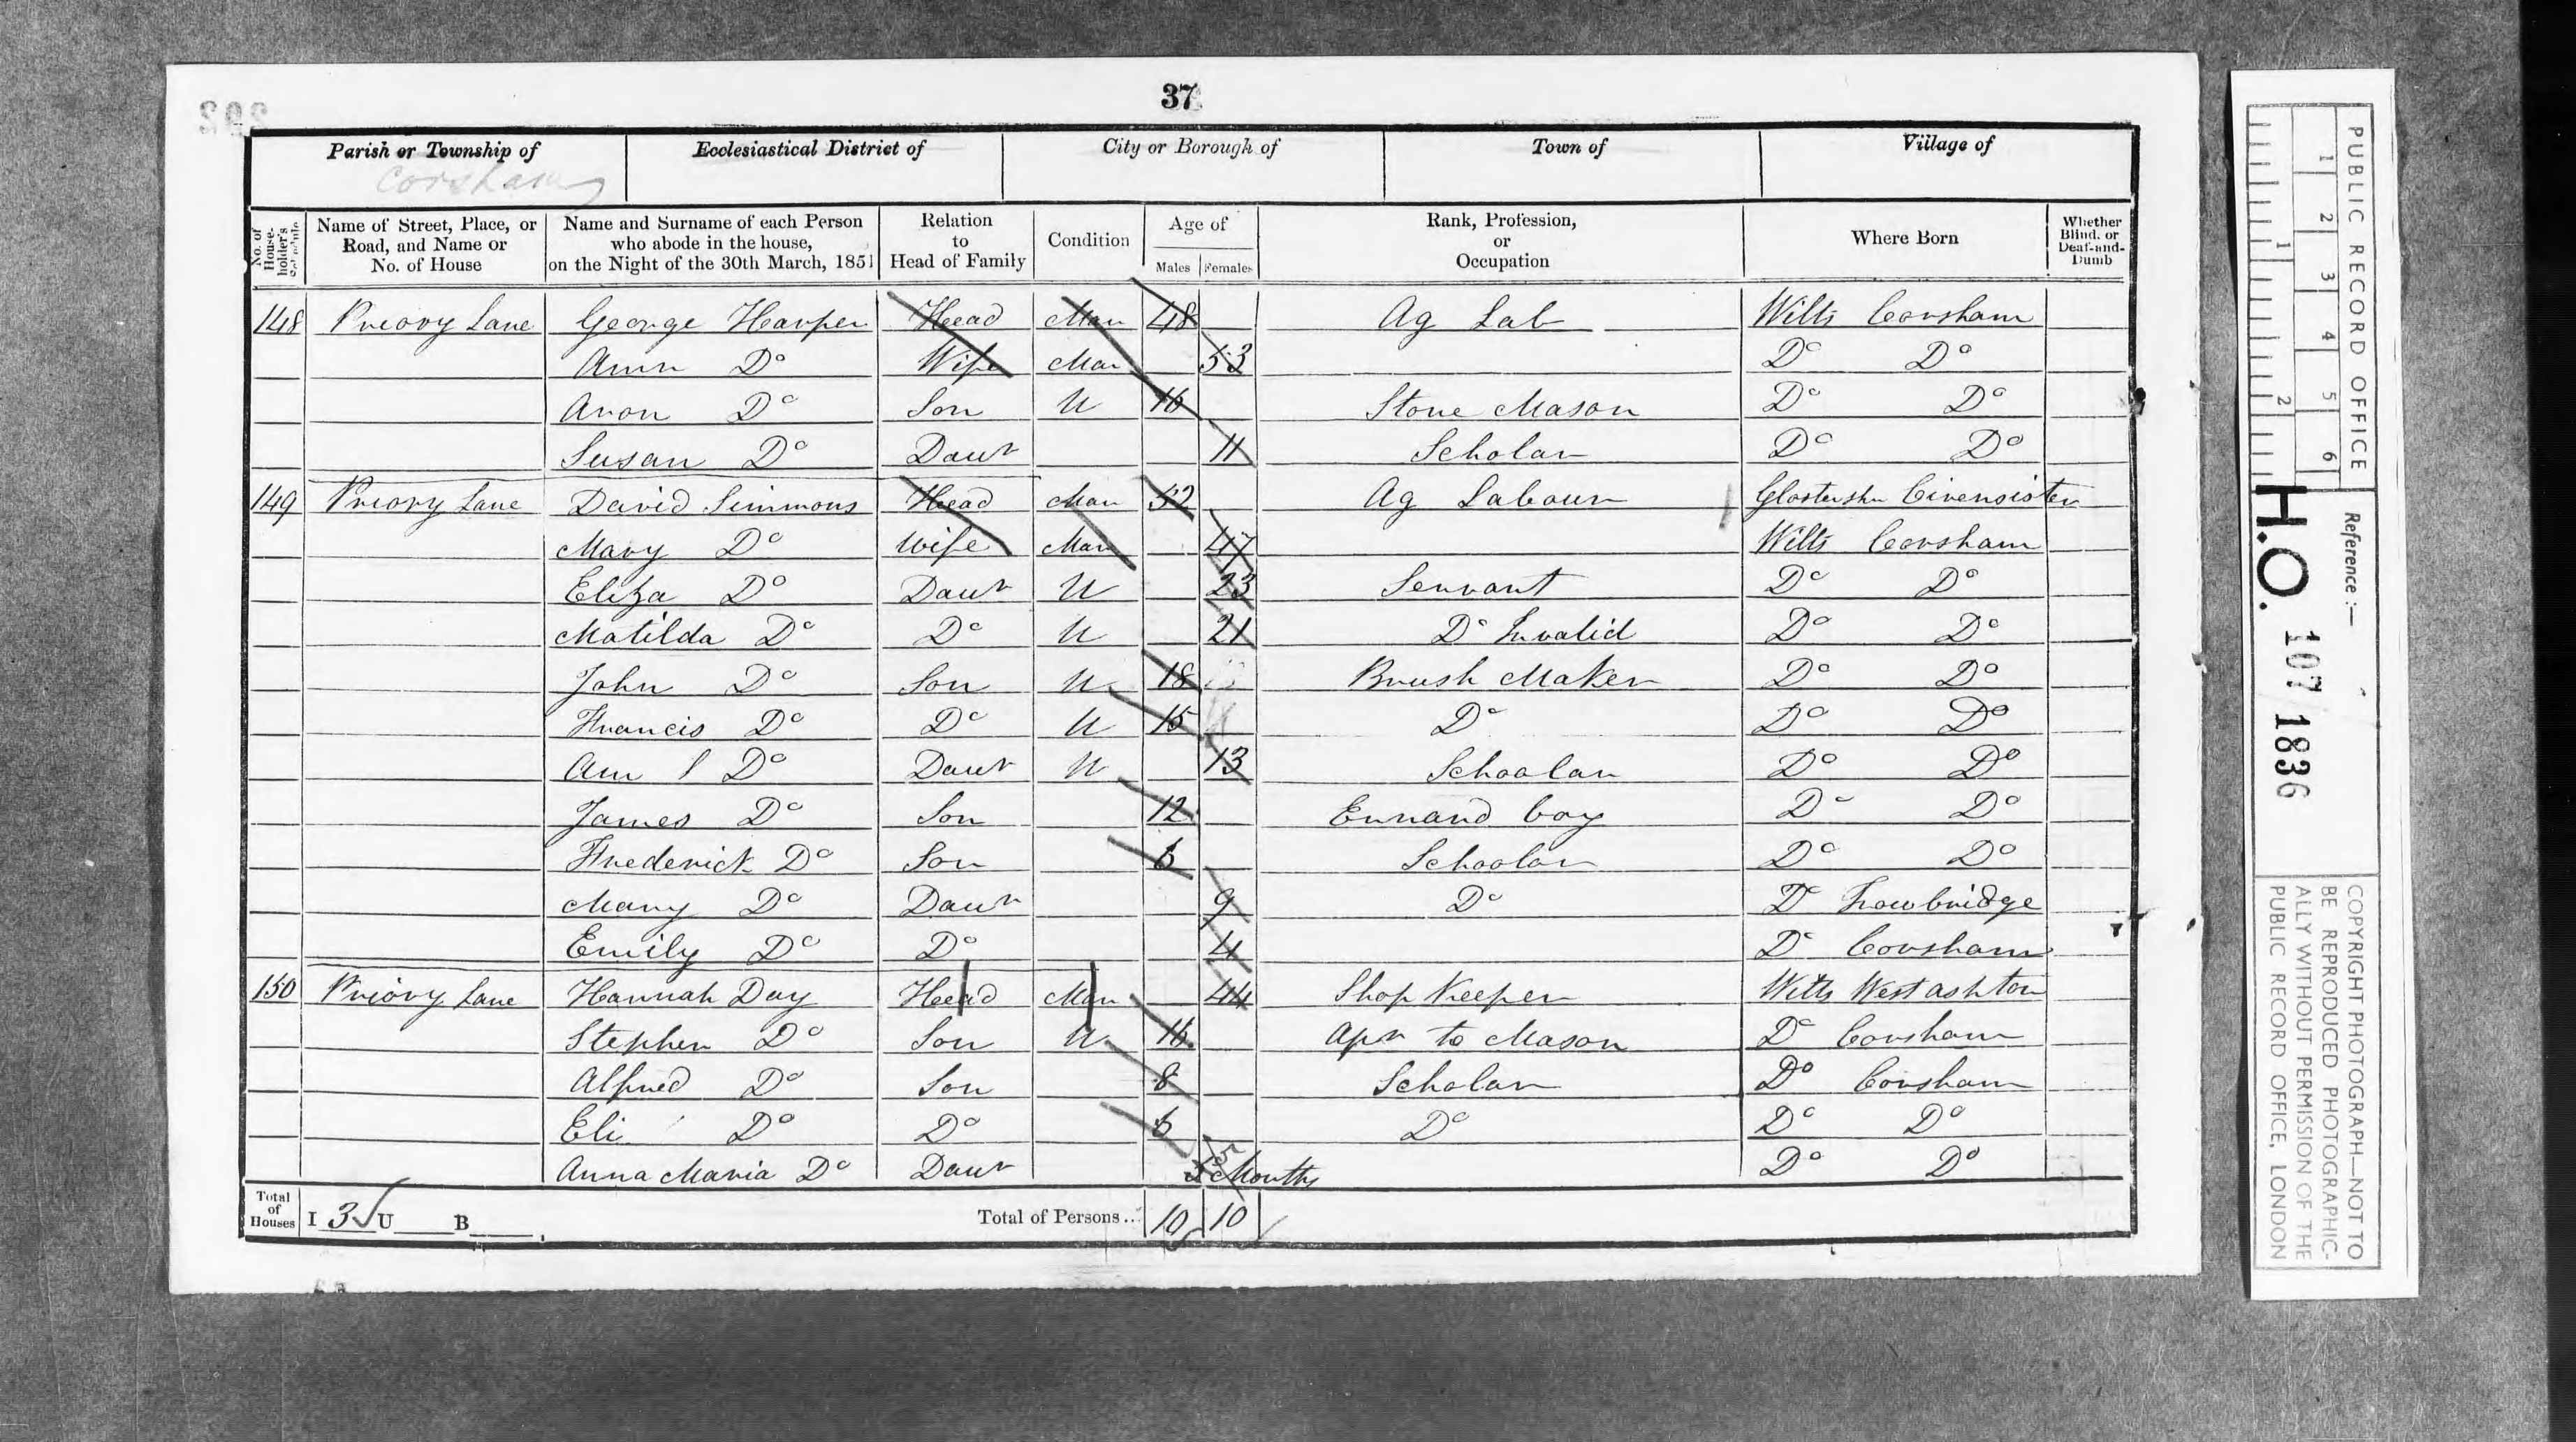 37
Parish or Township of Ecclesiastical District of City or Borough of Town of Village of
Corsham
No. of House-holder's Schedule Name of Street, Place, or Road, and Name or No. of House Name and Surname of each Person who abode in the house, on the Night of the 30th March, 1851 Relation to Head of Family Condition Age of Males Females Rank, Profession, or Occupation Where Born Whether Blind, or Deaf-and-Dumb
148 Priory Lane George Harper Head Mar 48 Ag Lab Wilts Corsham
Ann Do Wife Mar 53 Do Do
Aron Do Son U 16 Stone Mason Do Do
Susan Do Daur 11 Scholar Do Do
149 Priory Lane David Simmons Head Mar 52 Ag Labour Glostershr Cirensister
Mary Do Wife Mar 47 Wilts Corsham
Eliza Do Daur U 23 Servant Do Do
Matilda Do Do U 21 Do Invalid Do Do
John Do Son U 18 Brush Maker Do Do
Francis Do Do U 15 Do Do Do
Ann S Do Daur U 13 Schoolar Do Do
James Do Son 12 Errand boy Do Do
Frederick Do Son 6 Schoolar Do Do
Mary Do Daur 9 Do Do Trowbridge
Emily Do Do 4 Do Corsham
150 Priory Lane Hannah Day Head Mar 44 Shop Keeper Wilts West ashton
Stephen Do Son U 16 Apr to Mason Do Corsham
Alfred Do Son 8 Scholar Do Corsham
Eli Do Do 5 Do Do Do
Anna Maria Do Daur 5 Months Do Do
Total of Houses I 3 U B Total of Persons... 10 10
PUBLIC RECORD OFFICE
1 2 3 4 5 6
1 2
Reference :-
H.O. 107/1836
COPYRIGHT PHOTOGRAPH—NOT TO
BE REPRODUCED PHOTOGRAPHIC-
ALLY WITHOUT PERMISSION OF THE
PUBLIC RECORD OFFICE, LONDON